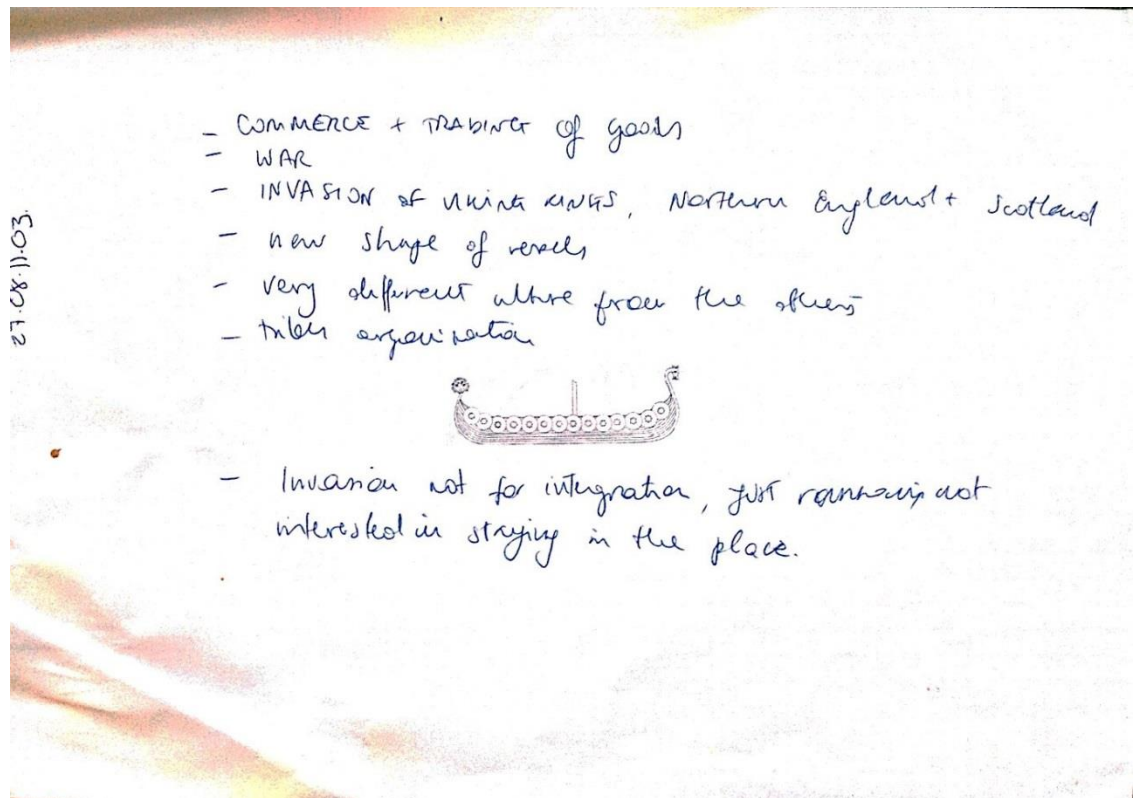 - COMMERCE + TRADING of goods
- WAR
- INVASION OF VIKING KINGS, Northern England + Scotland
- new shape of vessels
- very different culture from the others
- tribes organisation
- Invasion not for integration, just not
interested in staying in the place.
27.08.11.03.